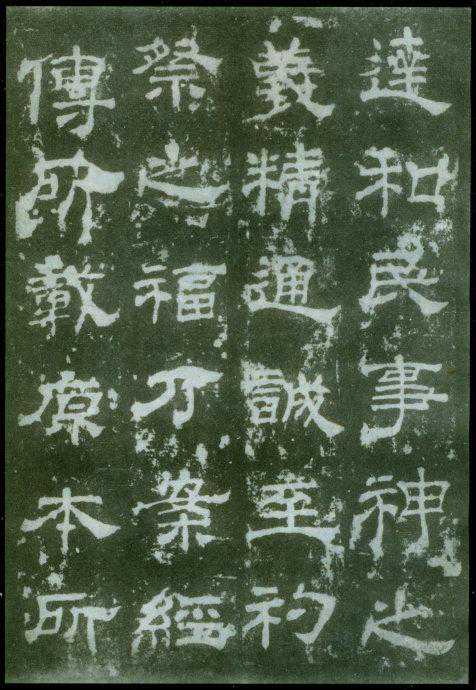 達和民事神之
義精通誠至礿
祭之福乃案經
傳所載原本所